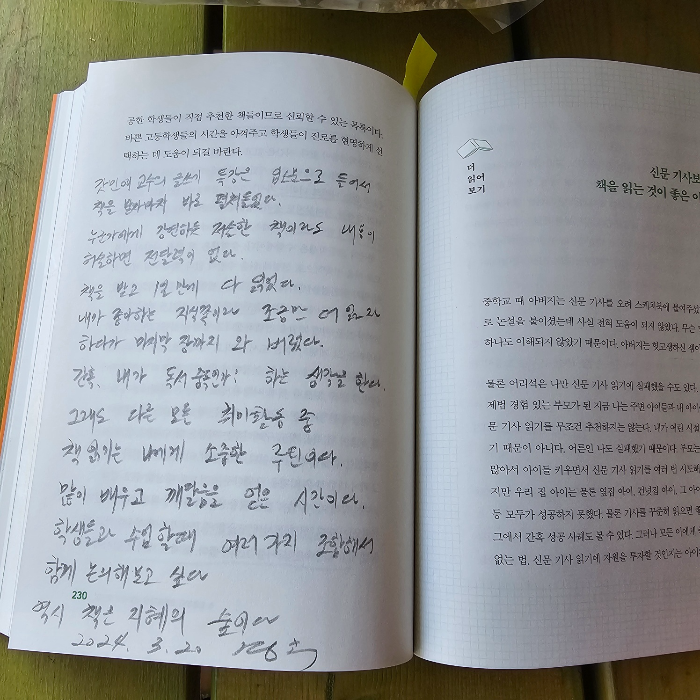 공한 학생들이 직접 추천한 책들이므로 신뢰할 수 있는 목록이다.
바쁜 고등학생들의 시간을 아껴주고 학생들이 진로를 현명하게 선
택하는 데 도움이 되길 바란다.
교수의 글쓰기 특강은 입소문으로 들어서
책을 받자마자 바로 펼쳐들었다.
누군가에게 강연하는 저술한 책이라도 내용이
허술하면 전달력이 없다.
책을 받고 1일만에 다 읽었다.
내가 좋아하는 지식쪽이라 조금만 더 읽고자
하다가 마지막 장까지 와 버렸다.
간혹, 내가 독서 중독인가? 하는 생각을 한다.
그래도 다른 모든 취미활동 중
책 읽기는 나에게 소중한 루틴이다.
많이 배우고 깨달음을 얻은 시간이다.
학생들과 수업할때 여러가지 조합해서
함께 논의해보고 싶다
230
역시 책은 지혜의 숲이다
2024. 3. 20
더
읽어
보기
신문 기사보
책을 읽는 것이 좋은 이
중학교 때 아버지는 신문 기사를 오려 스케치북에 붙여주셨
로 논설을 붙이셨는데 사실 전혀 도움이 되지 않았다. 무슨
하나도 이해되지 않았기 때문이다. 아버지는 헛고생하신 셈이
물론 어리석은 나만 신문 기사 읽기에 실패했을 수도 있다.
제법 경험 있는 부모가 된 지금 나는 주변 아이들과 내 아이
문 기사 읽기를 무조건 추천하지는 않는다. 내가 어린 시절
기 때문이 아니다. 어른인 나도 실패했기 때문이다. 부모는
많아서 아이들 키우면서 신문 기사 읽기를 여러 번 시도해
지만 우리 집 아이는 물론 옆집 아이, 건넛집 아이, 그 아이
등 모두가 성공하지 못했다. 물론 기사를 꾸준히 읽으면 좋
그에서 간혹 성공 사례도 볼 수 있다. 그러나 모든 이에게
없는 법. 신문 기사 읽기에 자원을 투자할 것인지는 아이